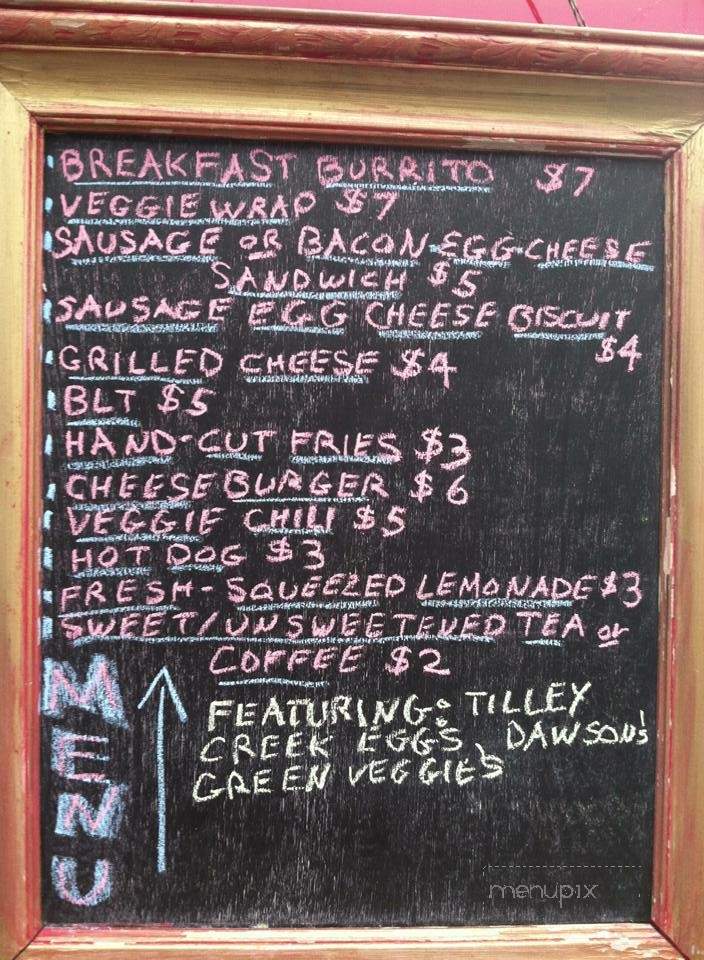 BREAKFAST BURRITO $7
VEGGIE WRAP $7
SAUSAGE OR BACON-EGG-CHEESE
SANDWICH $5
SAUSAGE EGG CHEESE BISCUIT
$4
GRILLED CHEESE $4
BLT $5
HAND-CUT FRIES $3
CHEESEBURGER $6
VEGGIE CHILI $5
HOT DOG $3
FRESH-SQUEEZED LEMONADE $3
SWEET/UNSWEETENED TEA or
COFFEE $2
MENU
FEATURING: TILLEY
CREEK EGGS, DAWSON'S
GREEN VEGGIES
menupix